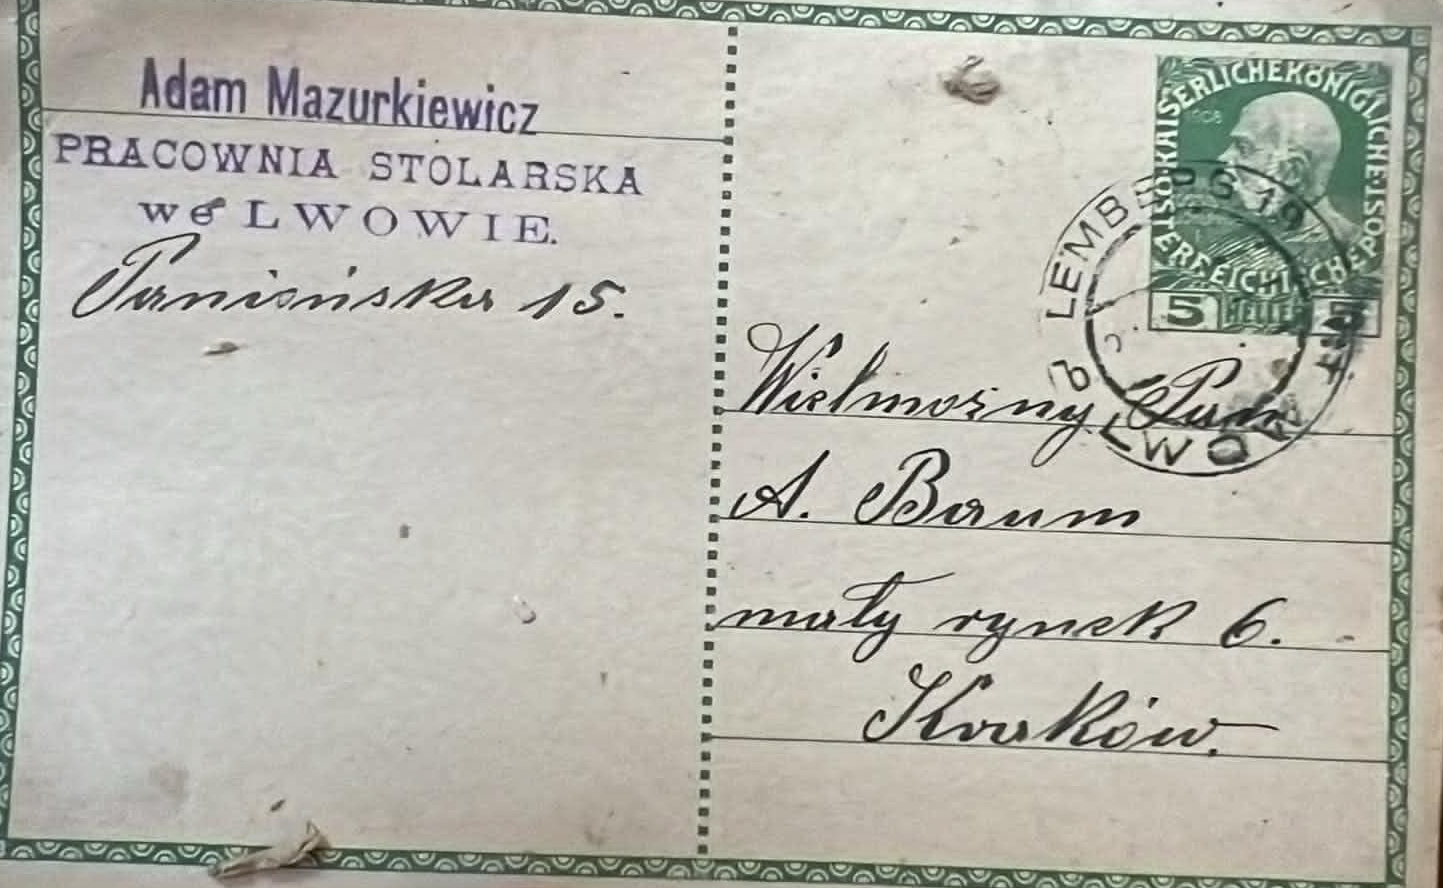 Adam Mazurkiewicz
PRACOWNIA STOLARSKA
we LWOWIE.
Panieńska 15.
KAISERLICHE KÖNIGLICHE
ÖSTERREICHISCHE POST
1908
5 HELLER 5
LEMBERG 19
LWOW
Wielmożny Pan
A. Baum
mały rynek 6.
Kraków.